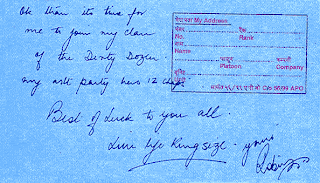 Ok than its time for
me to join my clan
of the Dirty Dozen.
my asti party has 12 chaps
Best of Luck to you all.
Live Life King size - yours
मेरा पता My Address
नंबर
No.
रैंक
Rank
नाम
Name
प्लाटून
Platoon
कम्पनी
Company
मार्फत ५६/ C/o 56/99 APO